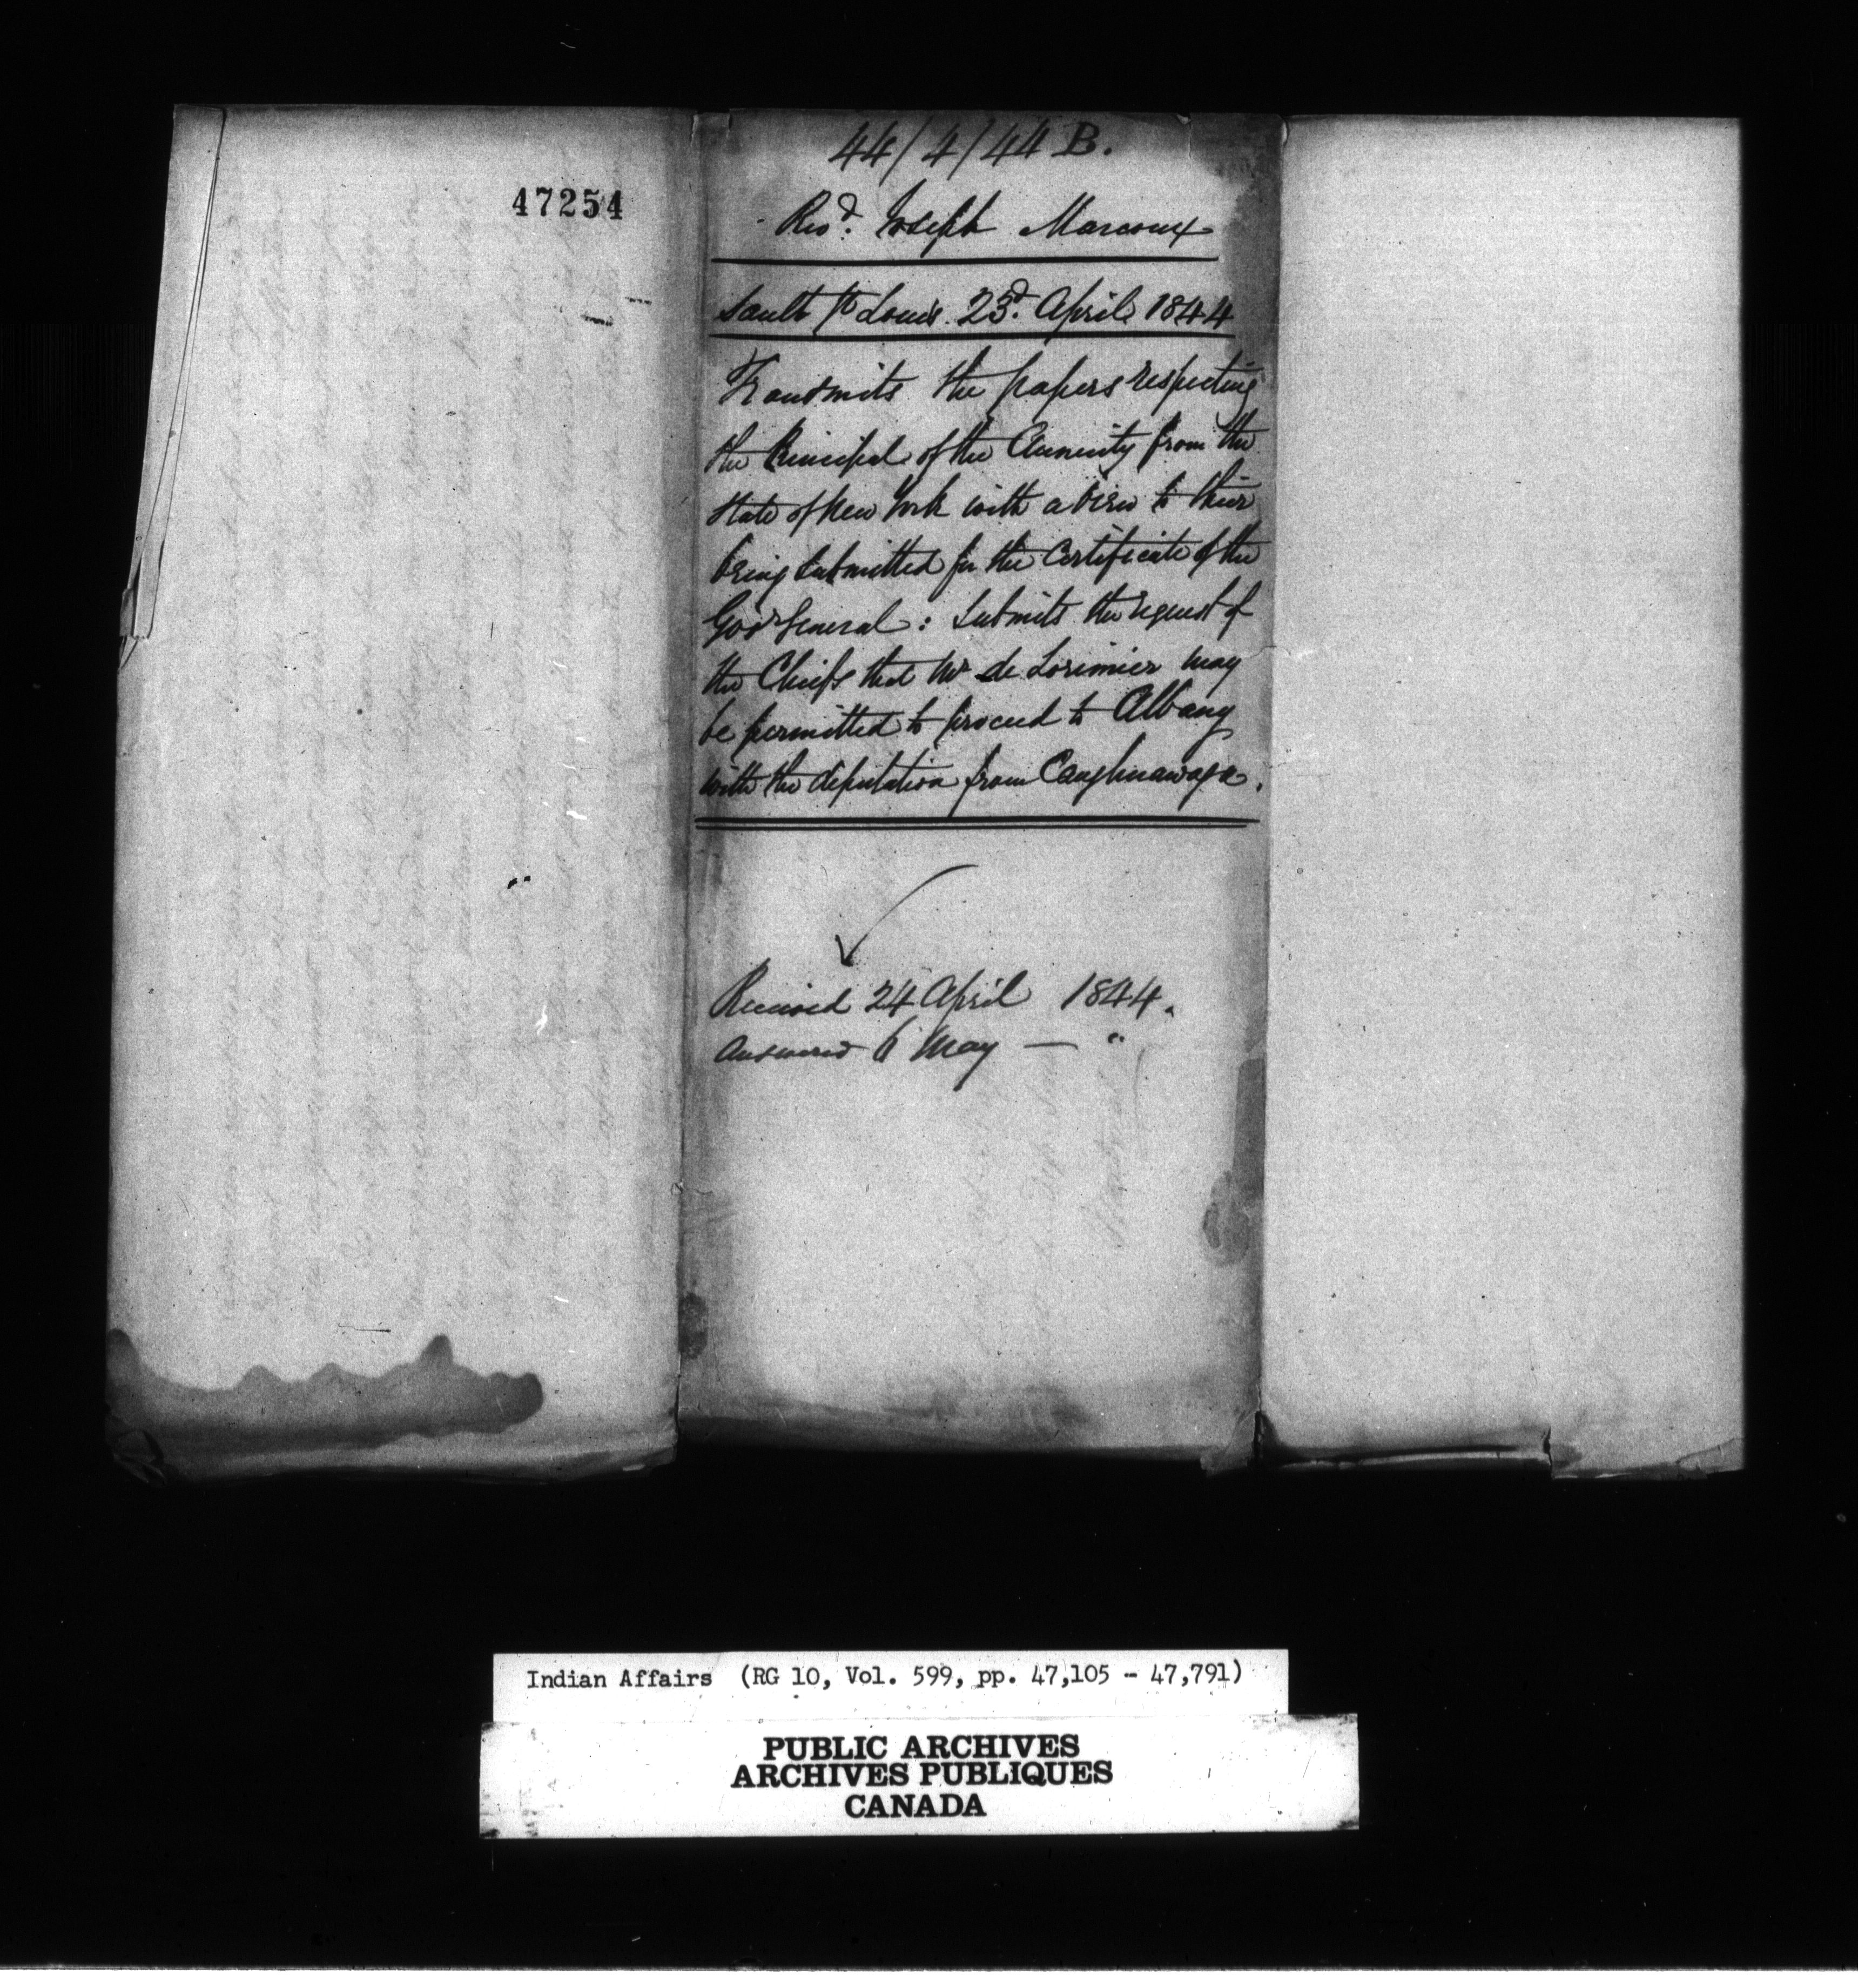 47254
44/4/44 B.
Revd. Joseph Marcoux
Sault St Louis. 23d. April 1844
Transmits the papers respecting
the Principal of the Annuity from the
State of New York with a view to their
being submitted for the Certificate of the
Govr General: Submits the request of
the Chiefs that Mr de Lorimier may
be permitted to proceed to Albany
with the deputation from Caughnawaga.
Received 24 April 1844.
Answered 6 May — "
Indian Affairs (RG 10, Vol. 599, pp. 47,105 - 47,791)
PUBLIC ARCHIVES
ARCHIVES PUBLIQUES
CANADA